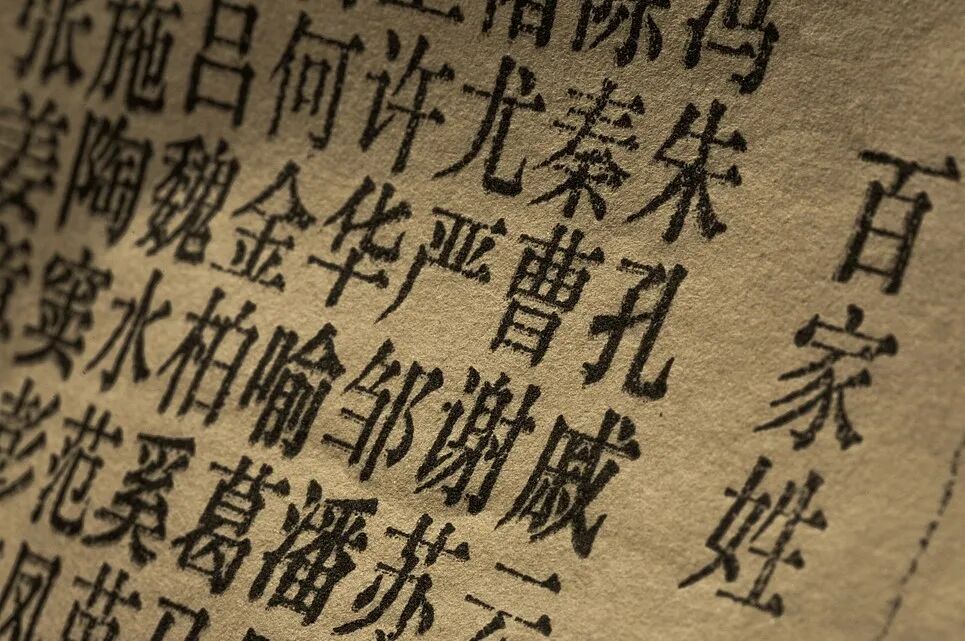 百家姓
冯陈
朱秦尤许何吕施张
孔曹严华金魏陶姜
戚谢邹喻柏水窦
云苏潘葛奚范彭
马苗凤